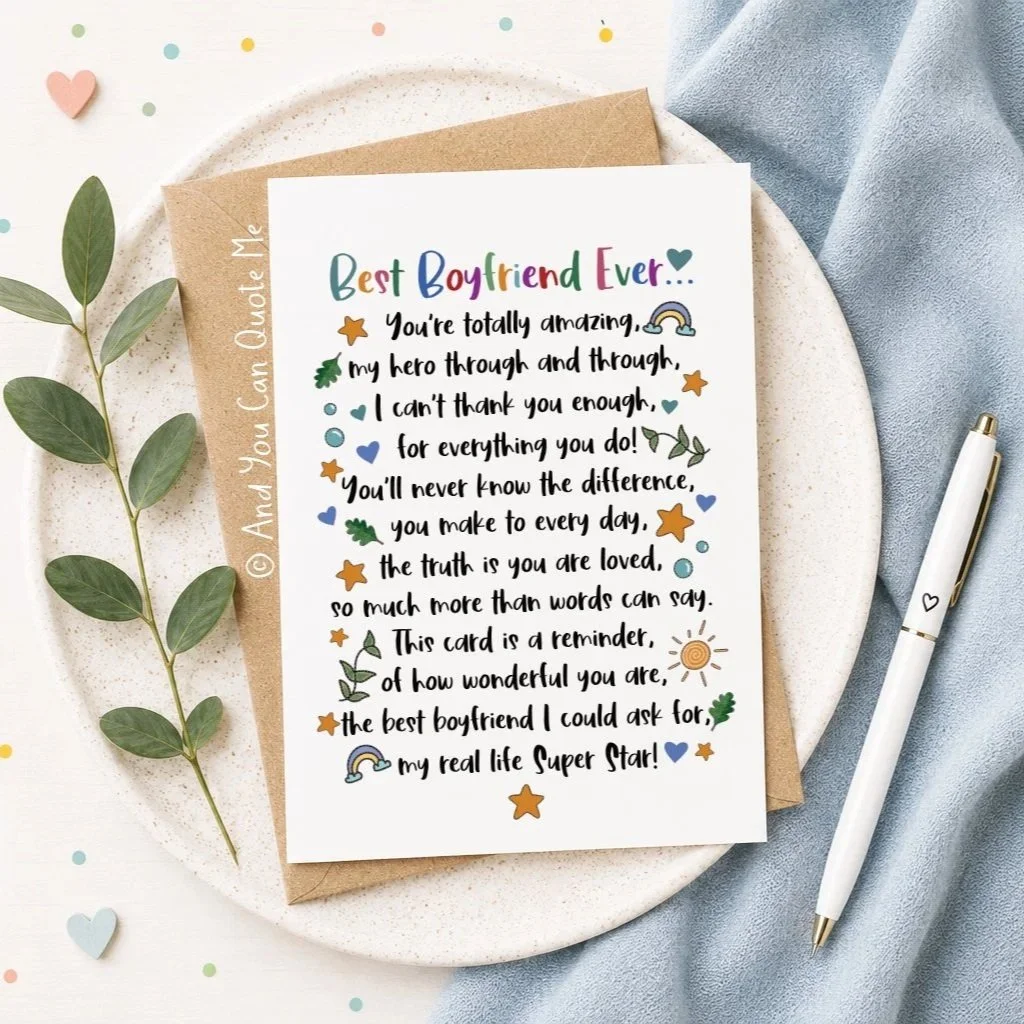 Best Boyfriend Ever...
You're totally amazing,
my hero through and through,
I can't thank you enough,
for everything you do!
You'll never know the difference,
you make to every day,
the truth is you are loved,
so much more than words can say.
This card is a reminder,
of how wonderful you are,
the best boyfriend I could ask for,
my real life Super Star!
© And You Can Quote Me